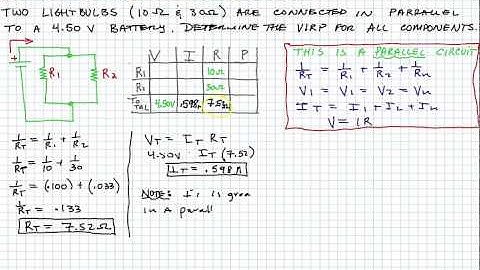 TWO LIGHTBULBS (10Ω & 30Ω) ARE CONNECTED IN PARRALEL
TO A 4.50 V BATTERY. DETERMINE THE VIRP FOR ALL COMPONENTS.
+
R1
R2
V I R P
R1 10Ω
R2 30Ω
TO
TAL 4.50V .598A 7.52Ω
THIS IS A PARALLEL CIRCUIT
1/RT = 1/R1 + 1/R2 + 1/Rn
V1 = V1 = V2 = Vn
IT = I1 + I2 + In
V = IR
1/RT = 1/R1 + 1/R2
1/RT = 1/10 + 1/30
1/RT = (.100) + (.033)
1/RT = .133
RT = 7.52Ω
VT = IT RT
4.50V IT (7.52)
IT = .598A
NOTE: is
in A parall